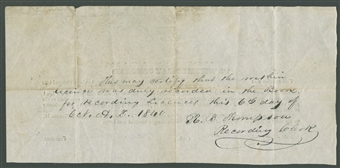 This may certify that the within
licence was duly recorded in the Book
for Recording Licences this 6th day of
A.D. 1840
Thompson
Recording Clerk